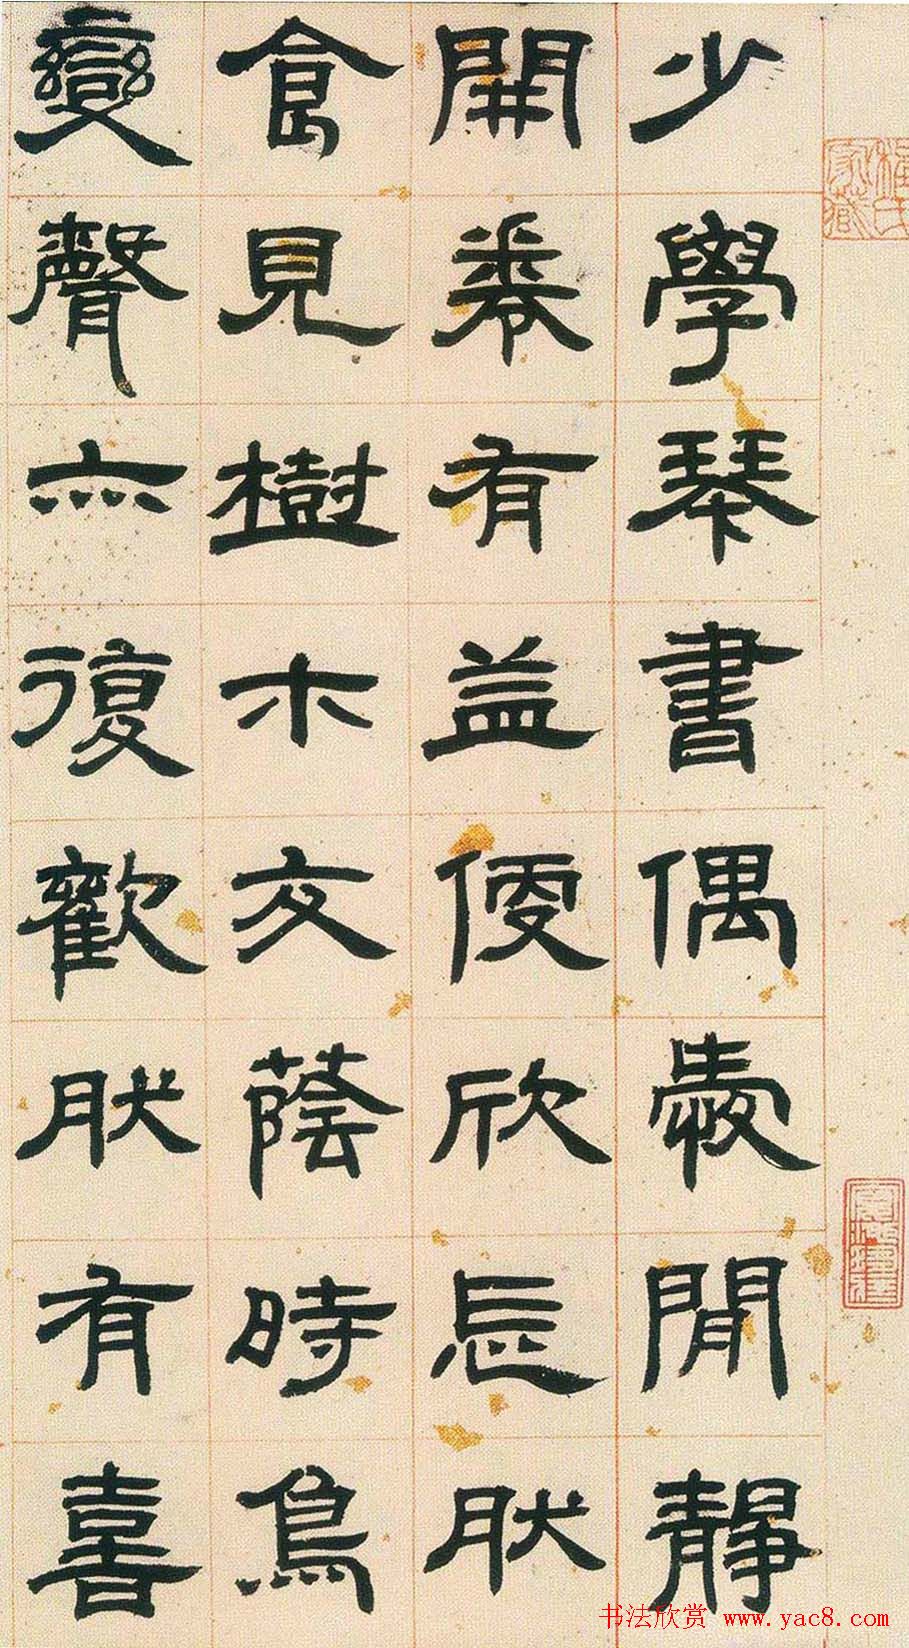 少學琴書偶愛閒靜
開卷有益便欣忘肰
食見樹木交蔭時鳥
變聲亦復歡肰有喜
程氏家藏
书法欣赏 www.yac8.com